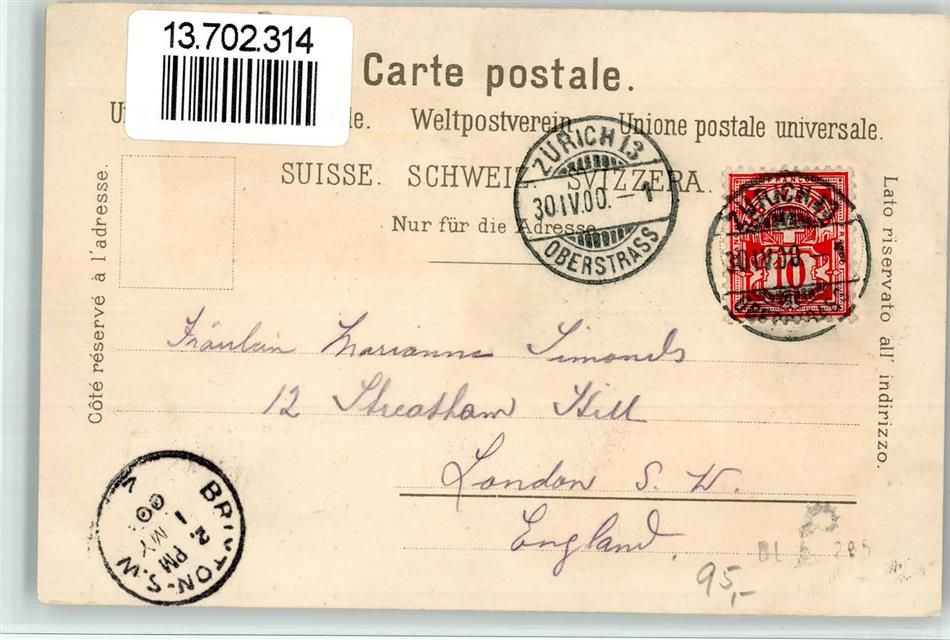 13.702.314
Carte postale.
Weltpostverein. Unione postale universale.
SUISSE. SCHWEIZ. SVIZZERA.
Nur für die Adresse.
Côté réservé à l'adresse.
Lato riservato all' indirizzo.
ZÜRICH 13
30.IV.00.–1
OBERSTRASS
FRANCO
10
ZÜRICH 13
30.IV.00 – 1
Fräulein Marianne Simonds
12 Streatham Hill
London S. W.
England.
BRIXTON-S.W
2. PM
MY 1
00
BL 285
95,-